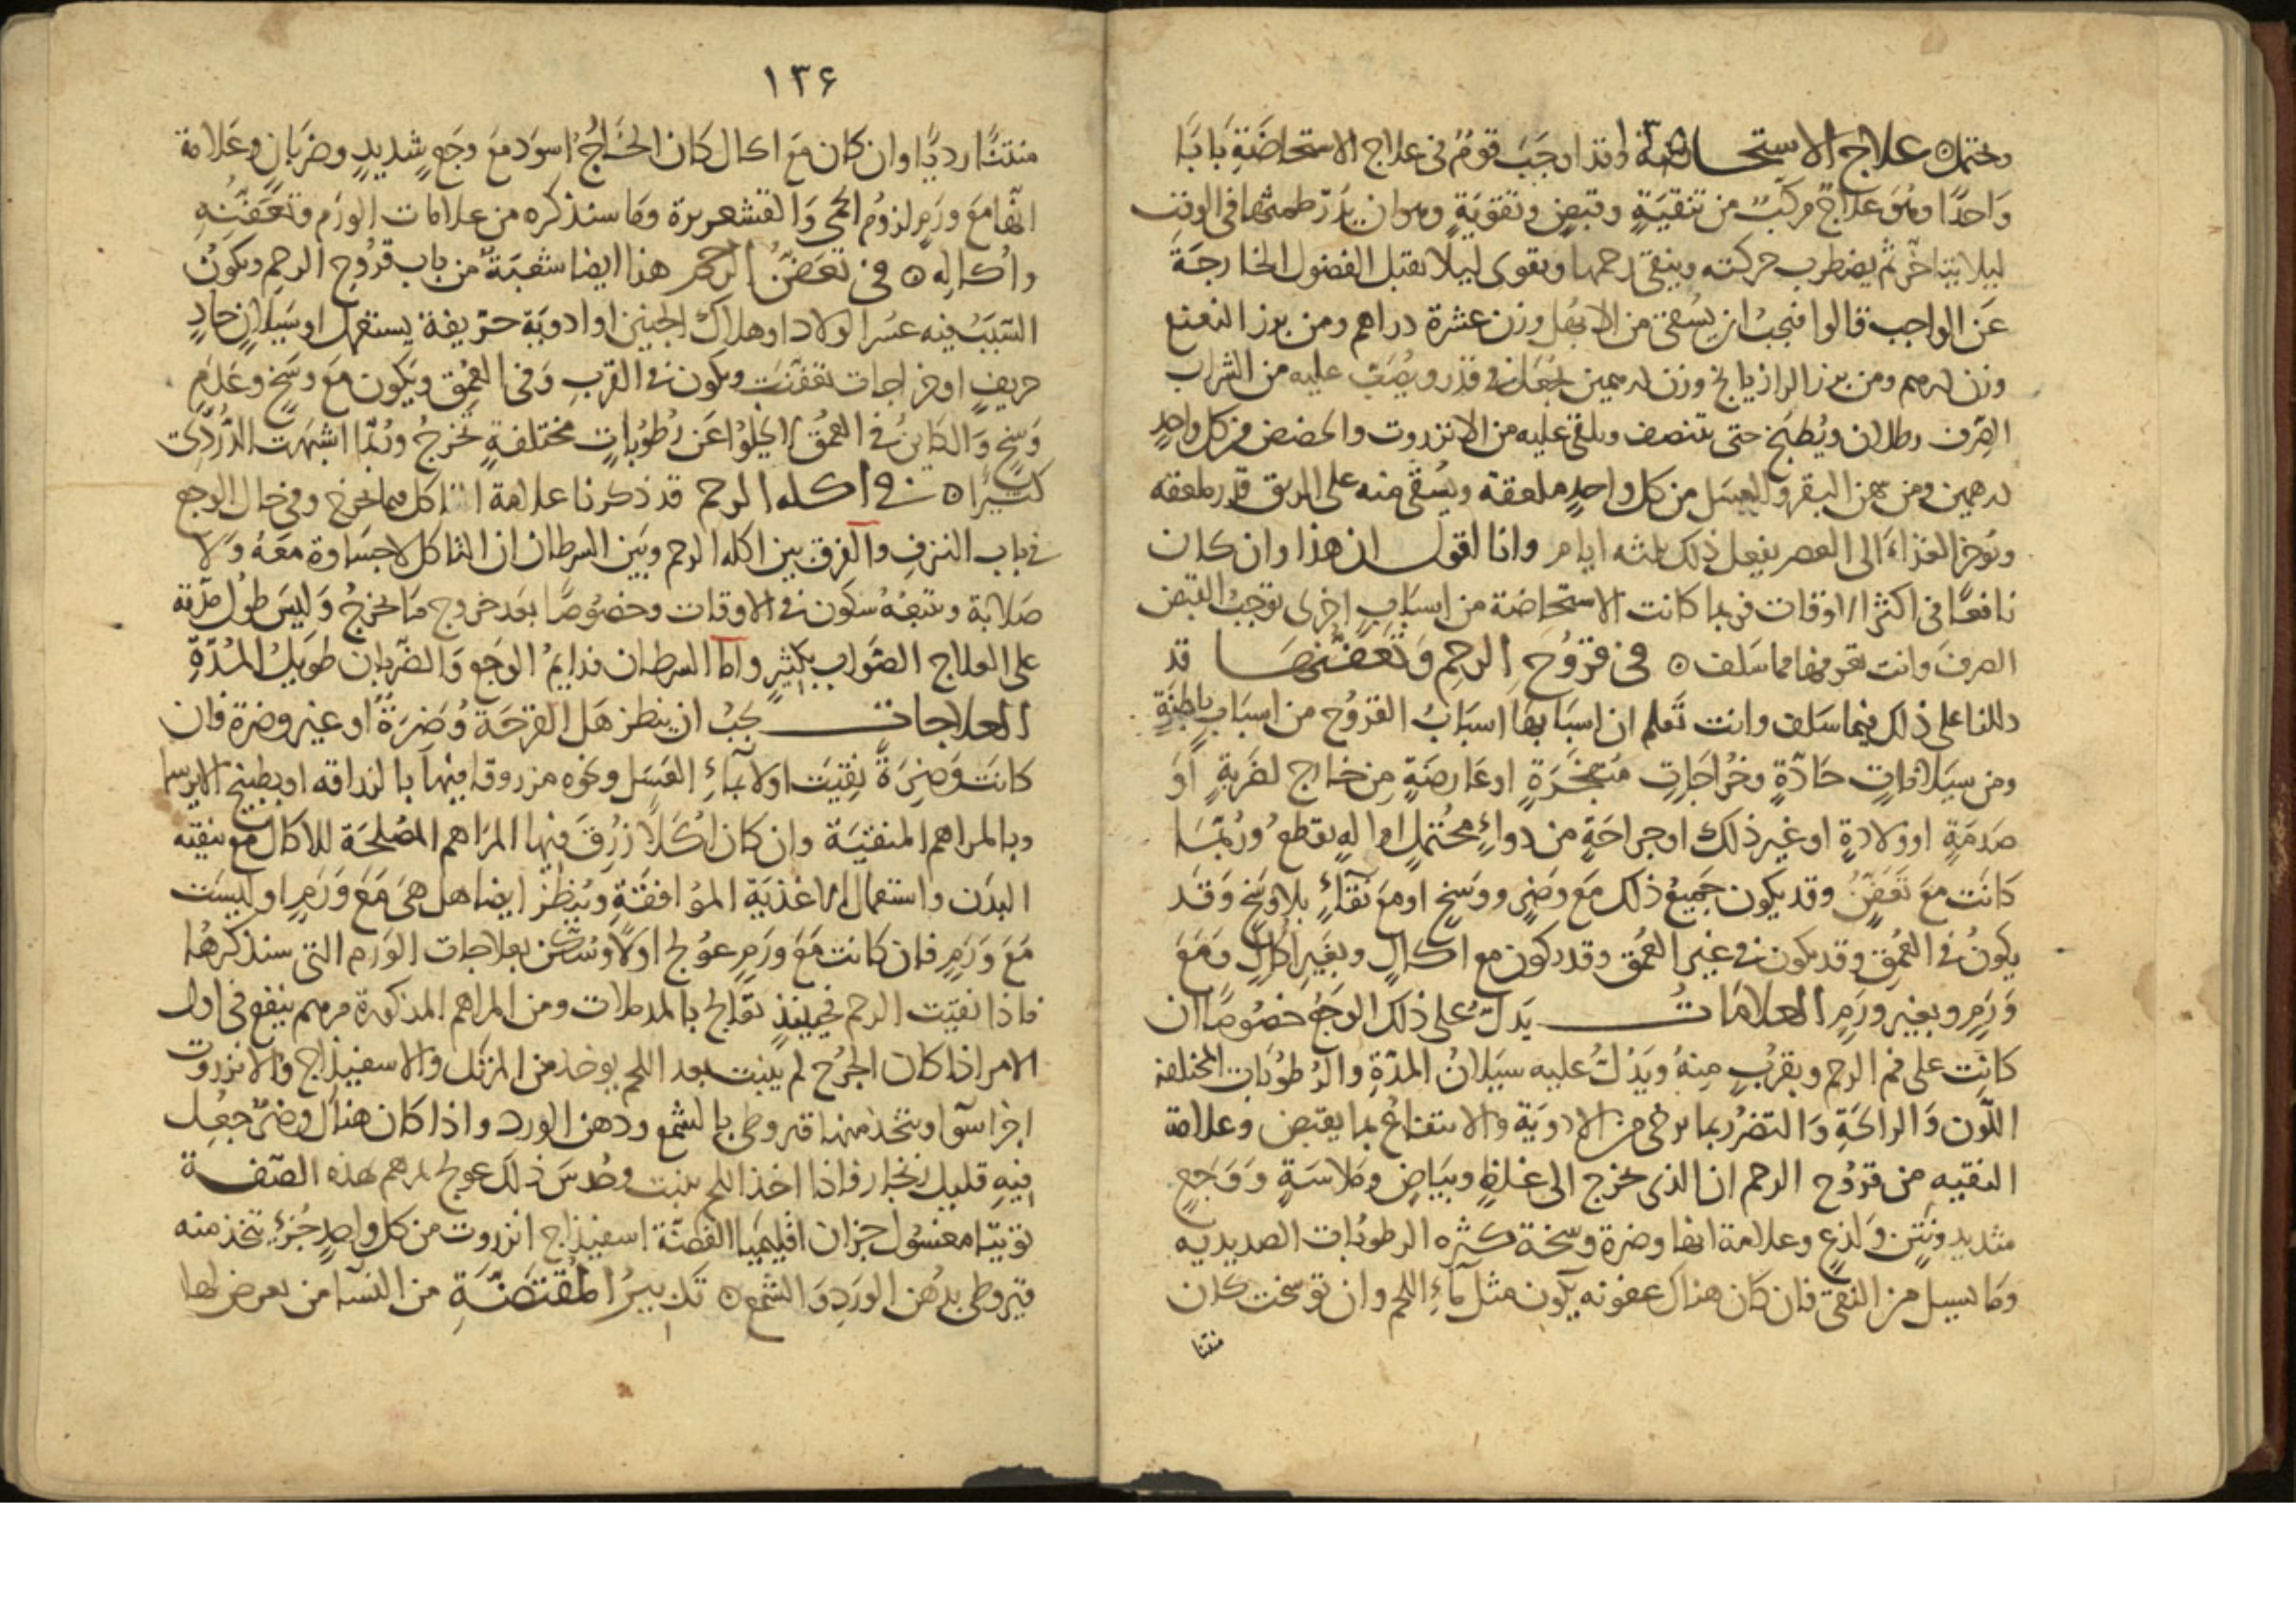 وتحتمل ٥ علاج الاستحاضة وقد اوجَبَ قومٌ في علاج الاستحاضَةِ بَابًا
وَاحدًا وهُوَ علاجٌ مركَبٌ من تنقيَةٍ وقبضٍ وتقويَةٍ وهو ان يُدَرّ طمثها في الوقت
ليلا يتاخّر ثم يضطرب حركته وينقى رحمها ويقوى ليلا يقبل الفضول الخارجَة
عَن الواجب قالوا فيجبُ ان يُسقى من الابهل وزن عشرة دراهم ومن بزر النعنع
وزن درهم ومن بزر الرازيانج وزن درهمين يجعل في قدر ويُصَبّ عليه من الشراب
الصّرف رطلان ويُطبَخ حتى يتنصف ويلقى عليه من الانزروت والحضض من كل واحدٍ
درهمين ومن سمن البقر والعسَل من كل واحدٍ ملعقة ويُسقى منه على الريق قدر ملعقة
ويؤخر الغذاءَ الى العصر يفعل ذلك ثلثه ايام وانا اقول ان هذا وان كان
نافعًا في اكثر الاوقات فربما كانت الاستحاضة من اسبَابٍ اخرى توجبُ القبض
الصرفَ وانت تعرفها مما سَلف ٥ في قرُوُح الرحِم وَتَعَفّنهَا قد
دللنا على ذلك فيما سَلف وانت تَعلم ان اسبَابهَا اسبَابُ القروُح من اسبَابٍ باطِنَةٍ
ومن سيَلاناتٍ حَادّةٍ وخُراجَاتٍ متفجّرَةٍ اوعَارضَةٍ مِن خارج لضَربةٍ اَو
صَدمَةٍ اوولادةٍ اوغيرِ ذلك اوجراحَةٍ من دواءٍ محُتملٍ اوالهٍ يقطعُ ورُبمّا
كانَت مَعَ تَعَفّنٍ وقد يكون جَميعُ ذلك مَع وَضَرٍ ووسَخٍ اومَعَ نَقَاءٍ بلاوَسَخٍ وَقَد
يكونُ في العُمقِ وقد يكون في غير العُمق وقد يكون مع اكالٍ وبغَير اُكالٍ وَمَعَ
وَرَمٍ وبغير ورَمٍ العلامَاتُ يَدلّ على ذلك الوَجَعُ خصُوصًا ان
كانت على فم الرحم وبقربٍ مِنهُ ويَدُلّ عليه سيَلانُ المدّةِ والرُطوُبَات المختلفة
اللّون وَالرائحَةِ وَالتضرُر بما يرخى من الادويَة والانتفاعُ بما يقبض وعلامة
النقيه من قروُح الرحم ان الذى يخرج الى غلظٍ وبيَاضٍ وملاسَةٍ وَوَجَعٍ
شديد ونَتنٍ وَلذعٍ وعلامة انها وضرة وسخة كثره الرطوبات الصديديه
وما يسيل من النقى فان كان هناك عفونه يكون مثل مآءِ اللحم وان توسخت كان
منتنا
١٣۶
منتنًا رديًّا وان كان مَعَ اكال كَانَ الخارجُ اسوَد مَعَ وجَعٍ شديدٍ وضرَبانٍ وعَلامة
انها مَعَ ورَمٍ لزوُم الحمى وَالقشعريرة وما سنذكره من علامات الورَم وتعَفّنِهِ
واكاله ٥ في تعَفّنُ الرحم هذا ايضا شعبَةٌ من باب قرُوُح الرحم ويكونُ
السّبَبُ فيه عسُر الولاد اوهلاك الجنين اوادويَة حرّيفة يستعمل اوسَيَلانٍ حادٍ
حريفٍ اوخراجات تعفّنت ويكون في القرب وَفي العُمُق ويكون مَع وسَخٍ وعَدَمِ
وَسخٍ وَالكاينُ في العمُق لايخلوُا عَن رُطوُباتٍ مختلفةٍ تخرجُ ورُبمّا اشبهَت الدُّردِىّ
كثيرًا ٥ في اكله الرحم قد ذكرنا علامة التاكل مما يخرج وفي حال الوجع
في باب النزفِ والفرق بين اكله الرحم وبَين السرطان ان التاكل لاجسَاوة معَهُ وَلا
صَلابة ويتبعُهُ سكون في الاوقات وخصُوصًا بعَد خروج مَا يخرجُ وَليسَ طوُل مدّته
على العلاج الصّواب بكثيرٍ واما السرطان فدايمُ الوجَعِ وَالضّرَبان طويَلُ المُدّةِ
العلاجات يجبُ ان ينظر هَل القرحَة وَضرَةٌ اوغير وضرة فان
كانَت وَضِرَةً نُقيَت اولا بمآءِ العَسَل ونحوه مزروقا فيها بالزراقه اوبطبيخ الايرسا
وبالمراهم المنقيَة وان كان اُكَلًا زُرِقَ فيها المرَاهم المصُلحَة للاكال مع تنقية
البدَن واستعمال الاغذيَة المُوافقةِ ويُنظرُ ايضا هل هىَ مَعَ وَرَمٍ اوليسَت
مَعَ وَرَمٍ فان كانت مَعَ ورَمٍ عوُلج اولًا وسُكّن بعلاجات الوَرم التى سنذكرهُا
فاذا نقيّت الرحم فحينئذٍ تعالج بالمدملات ومن المراهم المذكورة مرهم ينفع في اول
الامر اذا كان الجُرُح لم ينبت بعد اللحم يوخد من المرتك والاسفيذاج والانزروت
اجزا سوا ويتخذ منها قيروطى بالشمع ودهن الورد واذا كان هناك وضَرٌ جعُل
فيهِ قليل زنجار فاذا اخذ اللحم ينبت وحُدسَ ذلك عولج بمرهم بهذه الصّفة
توتيا مغسُول جزان اقليميا الفضّة اسفيذاج انزروت من كل واحدٍ جُزءٍ يتخذ منه
قيروطى بدهُن الورَدِ وَالشّمع ٥ تَدبيرُ المُقتضّةِ من النسآ من يعرض لها